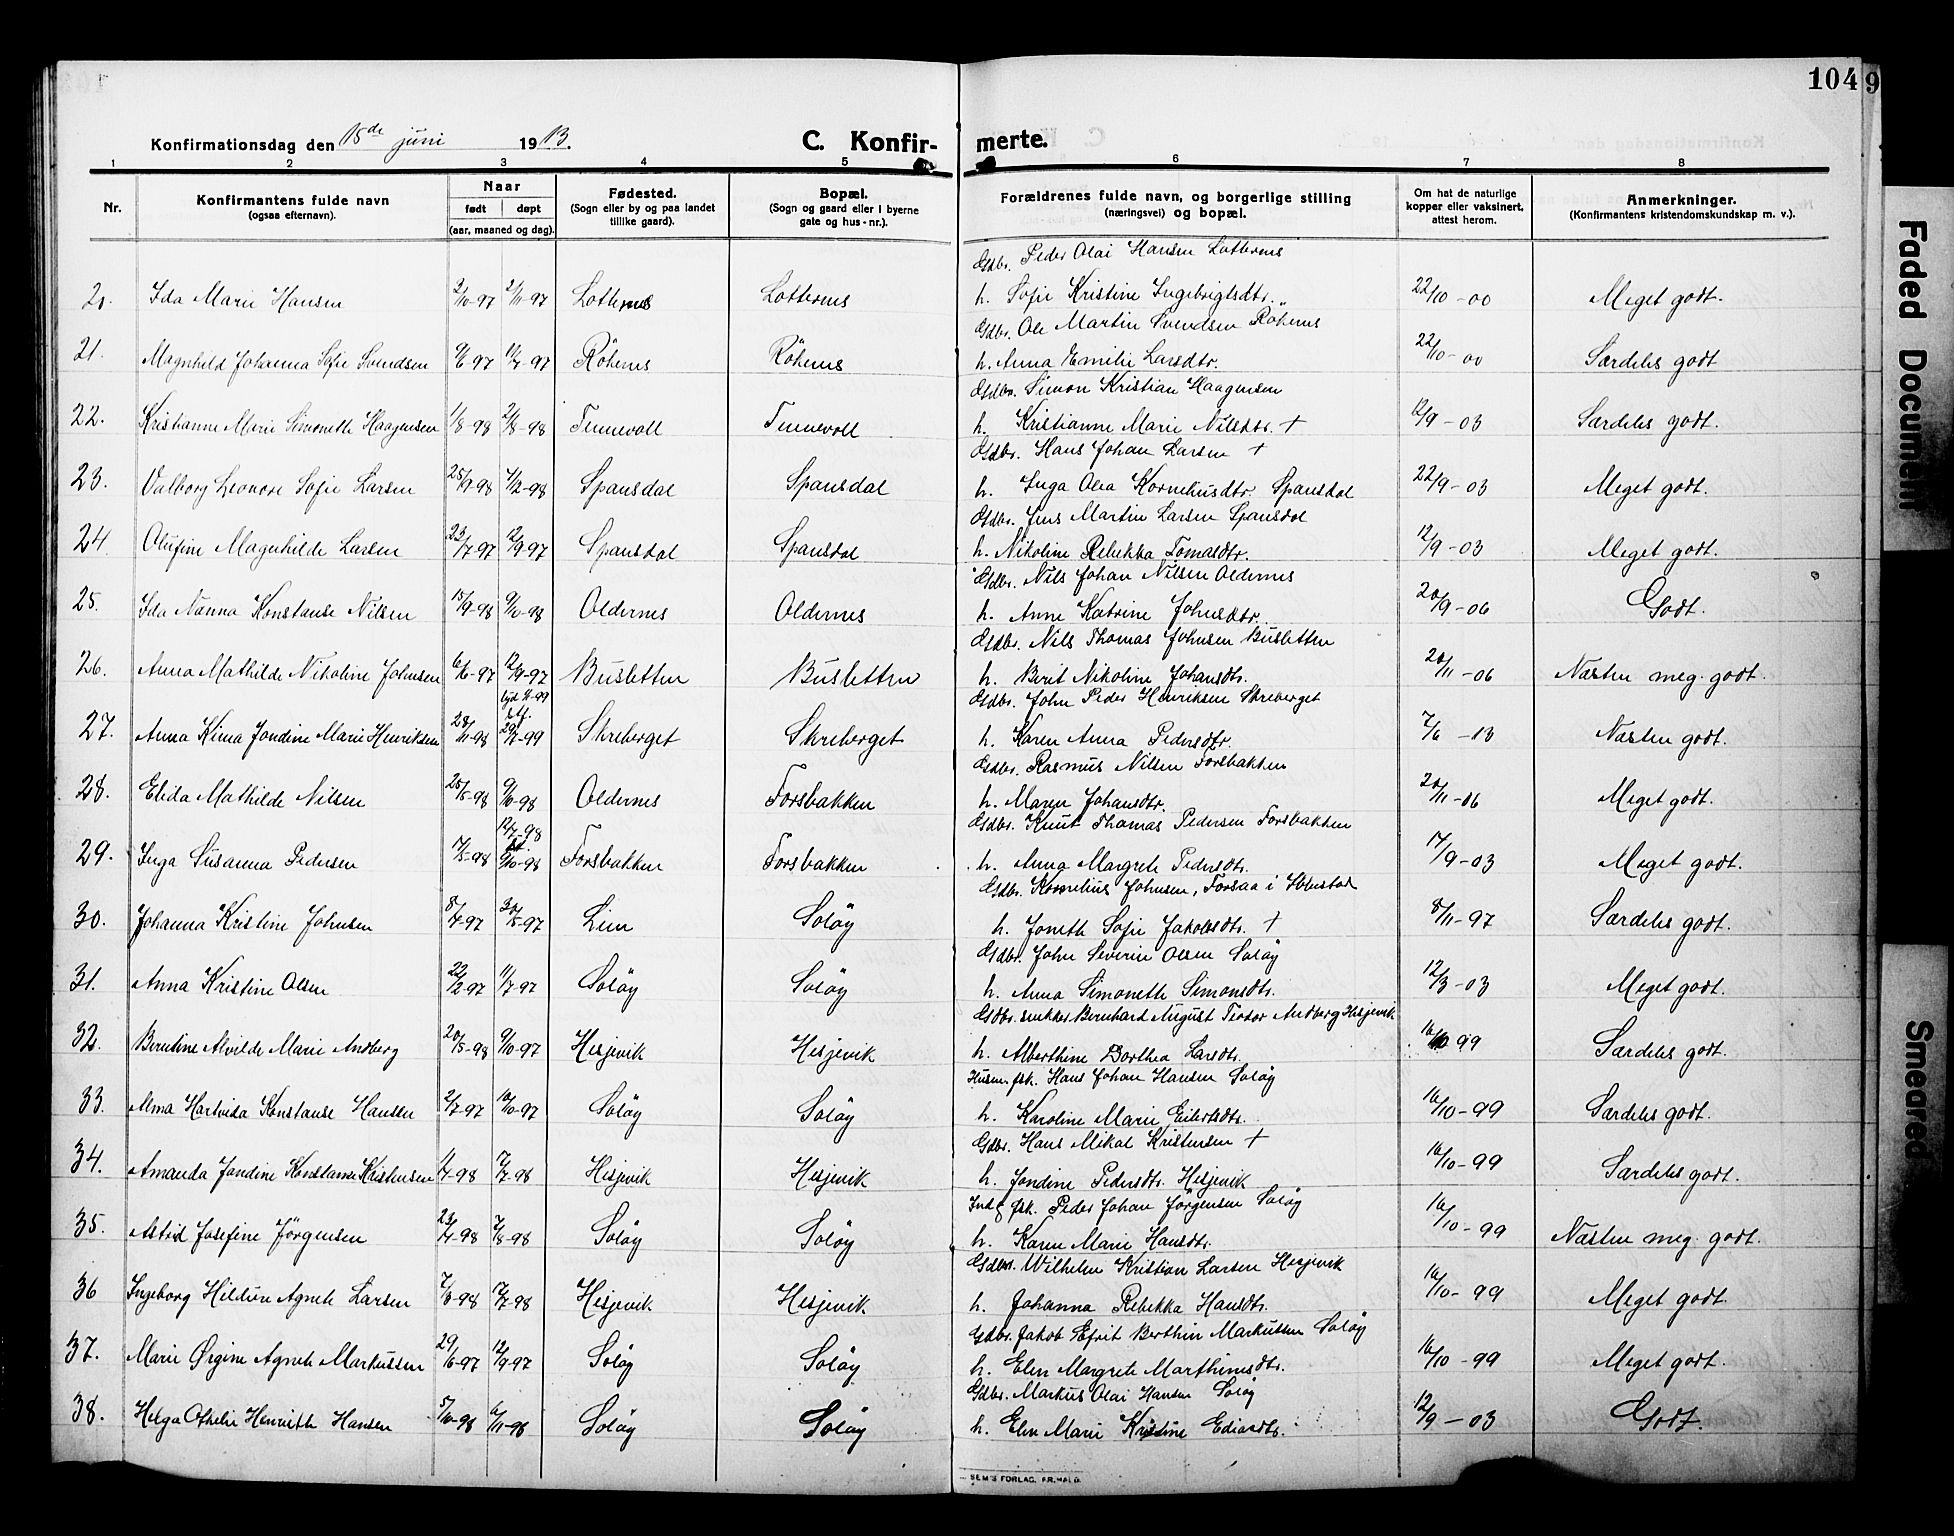 104
9
Konfirmationsdag den 15de juni 1913.
C. Konfirmerte.
1 2 3 4 5 6 7 8
Nr.
Konfirmantens fulde navn (ogsaa efternavn).
Naar
født døpt
(aar, maaned og dag).
Fødested. (Sogn eller by og paa landet tillike gaard).
Bopæl. (Sogn og gaard eller i byerne gate og hus-nr.).
Forældrenes fulde navn, og borgerlige stilling (næringsvei) og bopæl.
Om hat de naturlige kopper eller vaksinert, attest herom.
Anmerkninger. (Konfirmantens kristendomskundskap m. v.).
Gdbr. Peder Olai Hansen Lotternes
20. Ida Marie Hansen 2/10-97 21/11-97 Lotternes Lotternes h. Sofie Kristine Ingebrigtsdtr. „ 22/10-00 Meget godt.
Gdbr. Ole Martin Svendsen Rökenes
21. Magnhild Johanna Sofie Svendsen 9/6 97 11/7-97 Rökenes Rökenes h. Anna Emilie Larsdtr. 22/10-00 Særdeles godt
Gdbr. Simon Kristian Haagensen
22. Kristianne Marie Simonette Haagensen 1/8-98 21/8-98 Tennevoll Tennevoll h. Kristianne Marie Nilsdtr. + 12/9-03 Særdeles godt.
Gdbr. Hans Johan Larsen +
23. Valborg Leonore Sofie Larsen 25/9-98 4/12-98 Spansdal Spansdal h. Inga Olea Kornehusdtr. Spansdal 22/9-03 Meget godt.
Gdbr. Jens Martin Larsen Spansdal
24. Olufine Magnhilde Larsen 23/7-97 12/9-97 Spansdal Spansdal h. Nikoline Rebekka Tomasdtr. 12/9-03 Meget godt.
Gdbr. Nils Johan Nilsen Oldernes
25. Ida Nanna Konstanse Nilsen 15/9-98 9/10-98 Oldernes Oldernes h. Anne Katrine Johnsdtr. 20/9-06 Godt.
Gdbr. Nils Thomas Johnsen Busletten
26. Anna Mathilde Nikoline Johnsen 6/6-97 12/9-97 Busletten Busletten h. Berit Nikoline Johansdtr. 20/11-06 Næsten meg. godt.
Gdbr. John Peder Henriksen Skreberget
27. Anna Kima Jondine Marie Henriksen 28/11-98 Skreberget Skreberget h. Karen Anna Pedersdtr. 7/6-13 Næsten godt.
Gdbr. Rasmus Nilsen Forsbakken
28. Elida Mathilde Nilsen 25/5-98 9/10-98 Oldernes Forsbakken h. Maren Johansdtr. 20/11-06 Meget godt.
Gdbr. Knut Thomas Pedersen Forsbakken
29. Inga Susanna Pedersen 17/5-98 12/7-98 9/10-98 Forsbakken Forsbakken h. Anna Margrete Pedersdtr. 17/9-03 Meget godt.
Gdbr. Kornelius Johnsen, Forsaa i Ibbestad
30. Johanna Kristine Johnsen 8/4-97 30/5-97 Lien Soløy h. Jonette Sofie Jakobsdtr. + 8/11-97 Særdeles godt.
Gdbr. John Severin Olsen Soløy
31. Anna Kristine Olsen 22/2-97 11/7-97 Soløy Soløy h. Anna Simonette Simonsdtr. 12/3-03 Meget godt.
Gdbr. snekker Bernhard August Teodor Andberg Hesjevik
32. Berntine Alvilde Marie Andberg 20/5-98 9/10-97 Hesjevik Hesjevik h. Alberthine Dorthea Larsdtr. 16/10 99 Særdeles godt.
Husm. fsk. Hans Johan Hansen Soløy
33. Alma Hartvida Konstanse Hansen 2/7-97 10/10-97 Soløy Soløy h. Karoline Marie Eilertsdtr. 16/10-99 Særdeles godt.
Gdbr. Hans Mikal Kristensen +
34. Amanda Jondine Konstanse Kristensen 11/4-98 7/7-98 Hesjevik Hesjevik h. Jondine Pedersdtr. Hesjevik 16/10-99 Særdeles godt.
Inds. fsk. Peder Johan Jörgensen Soløy
35. Astrid Josefine Jörgensen 23/4-98 7/8-98 Soløy Soløy h. Karen Marie Hansdtr. 16/10-99 Næsten meg. godt.
Gdbr. Wilhelm Kristian Larsen Hesjevik
36 Ingeborg Hildur Agnete Larsen 7/3-98 17/7-98 Hesjevik Hesjevik h. Johanna Rebekka Hansdtr. 16/10-99 Meget godt.
Gdbr. Jakob Efrit Berthin Markussen Soløy
37. Marie Ørgine Agnete Markussen 29/6-97 12/9-97 Soløy Soløy h. Elen Margrete Marthinusdtr. 16/10-99 Meget godt.
Gdbr. Markus Olai Hansen Soløy
38. Helga Othelie Henriette Hansen 5/10-98 6/11-98 Soløy Soløy h. Elen Marie Kristine Ediasdtr. 12/9-03 Godt.
SEM'S FORLAG, FR.HALD.
Faded Document
Smeared